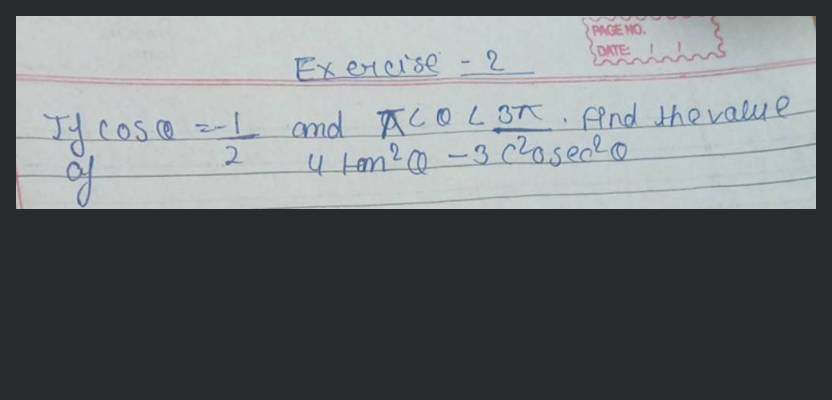 PAGE NO.
DATE: / /
Exercise - 2
If cos θ = -1/2 and π < θ < 3π. find the value
of 4 tan²θ - 3 c²osec²θ